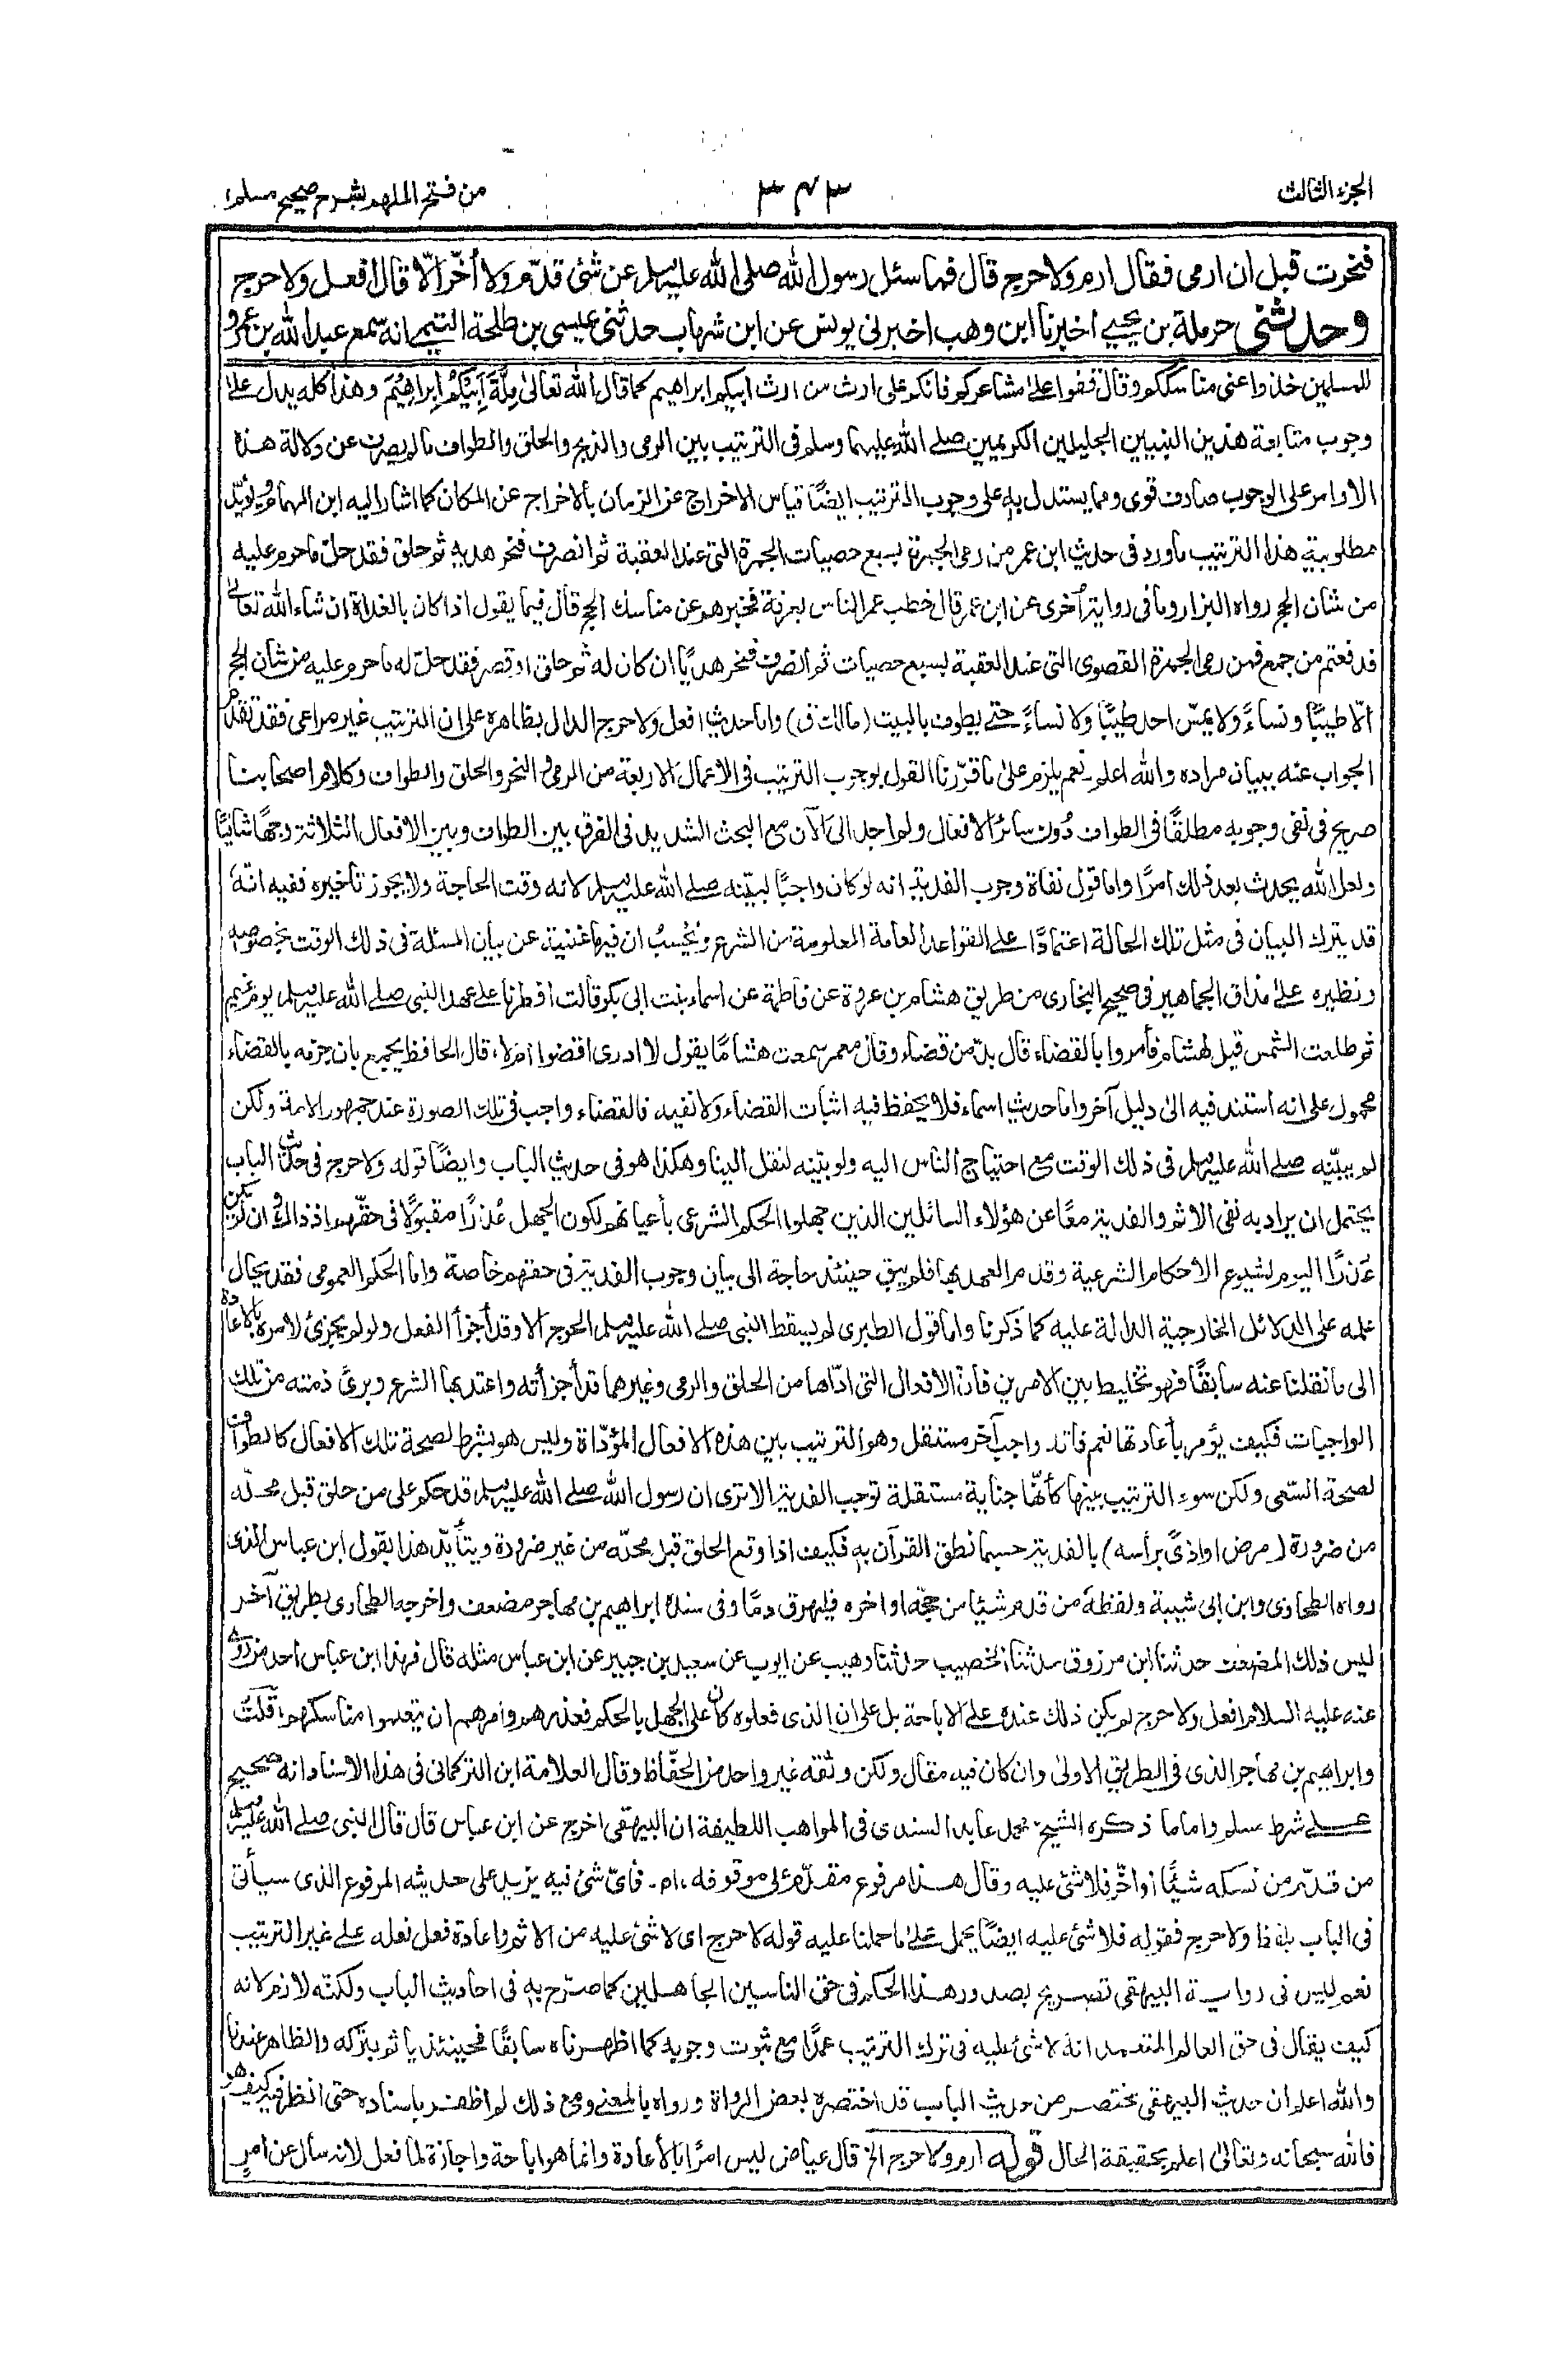 الجزء الثالث
٣٤٣
من فتح الملهم بشرح صحيح مسلم
فنحرت قبل ان ارمى فقال ارم ولا حرج قال فما سئل رسول الله صلى الله عليه وسلم عن شئ قدّم ولا أخّر الّا قال افعل ولا حرج
وحدثنى حرملة بن يحيى اخبرنا ابن وهب اخبرنى يونس عن ابن شهاب حدثنى عيسى بن طلحة التيمى انه سمع عبد الله بن عمرو
للمسلمين خذوا عنى مناسككم وقال قفوا على مشاعركم فانكم على ارث من ارث ابيكم ابراهيم كما قال الله تعالى مِلَّةَ اَبِيْكُمْ اِبراهِيْمَ وهذا كله يدل على
وجوب متابعة هذين النبيين الجليلين الكريمين صلے الله عليهما وسلم فى الترتيب بين الرمى والذبح والحلق والطواف مالم يصرف عن دلالة هذه
الاوامر على الوجوب صارف قوى ومما يستدل به على وجوب الترتيب ايضًا قياس الاخراج عن الزمان بالاخراج عن المكان كما اشار اليه ابن الهمام ويؤيّد
مطلوبية هذا الترتيب ما ورد فى حديث ابن عمر من رمى الجمرة بسبع حصيات الجمرة التى عند العقبة ثم انصرف فنحر هديه ثم حلق فقد حلّ ما حرم عليه
من شان الحج رواه البزار وما فى رواية أخرى عن ابن عمر قال خطب عمر الناس بعرفة فخبرهم عن مناسك الحج قال فيما يقول اذا كان بالغداة ان شاء الله تعالى
فدفعتم من جمع فمن رمى الجمرة القصوى التى عند العقبة بسبع حصيات ثم انصرف فنحر هديًا ان كان له ثم حلق او قصر فقد حلّ له ما حرم عليه من شان الحج
الّا طيبًا ونساءً ولا يمسّ احد طيبًا ولا نساءً حتے يطوف بالبيت (مالك ق) واما حديث افعل ولا حرج الدال بظاهره على ان الترتيب غير مراعى فقد تقدم
الجواب عنه ببيان مراده والله اعلم نعم يلزم على ما قرّرنا القول بوجوب الترتيب فى الاعمال الاربعة من الرمى والنحر والحلق والطواف وكلام اصحابنا
صريح فى نفى وجوبه مطلقًا فى الطواف دُون سائر الافعال ولم اجد الى الآن مع البحث الشديد فى الفرق بين الطواف وبين الافعال الثلاثة وجهًا شافيًا
ولعل الله يحدث بعد ذلك امرًا واما قول نفاة وجوب الفدية انه لو كان واجبًا لبيّنه صلے الله عليه وسلم لانه وقت الحاجة ولا يجوز تأخيره ففيه انهٗ
قد يترك البيان فى مثل تلك الحالة اعتمادًا على القواعد العامة المعلومة من الشرع ويُحْسبُ ان فيها غنية عن بيان المسئلة فى ذلك الوقت بخصوصه
ونظيره علىٰ مذاق الجماهير فى صحيح البخارى من طريق هشام بن عروة عن فاطمة عن اسماء بنت ابى بكر قالت افطرنا على عهد النبى صلے الله عليه وسلم يوم غيم
ثم طلعت الشمس قيل لهشام فأمروا بالقضاء قال بدّ من قضاء وقال معمر سمعت هشامًا يقول لا ادرى اقضوا ام لا، قال الحافظ يجمع بان جزمه بالقضاء
محمول على انه استند فيه الى دليل آخر واما حديث اسماء فلا يحفظ فيه اثبات القضاء ولا نفيه فالقضاء واجب فى تلك الصورة عند جمهور الامة ولكن
لم يبيّنه صلے الله عليه وسلم فى ذلك الوقت مع احتياج الناس اليه ولو بيّنه لنقل الينا وهكذا هو فى حديث الباب وايضًا قوله ولا حرج فى حديث الباب
يحتمل ان يراد به نفى الاثم والفدية معًا عن هؤلاء السائلين الذين جهلوا الحكم الشرعى بأعيانهم لكون الجهل عُذرًا مقبولًا فى حقّهم اذ ذاك وان لم يكن
عذرًا اليوم لشيوع الاحكام الشرعية وقدم العهد بها فلم يبق حينئذ حاجة الى بيان وجوب الفدية فى حقهم خاصة واما الحكم العمومى فقد يحال
علمه على الدلائل الخارجية الدالة عليه كما ذكرنا واما قول الطبرى لم يسقط النبى صلے الله عليه وسلم الحرج الا وقد أجزأ الفعل ولو لم يجزئ لامره بالاعادة
الى ما نقلنا عنه سابقًا فهو تخليط بين الامرين فانّ الافعال التى ادّاها من الحلق والرمى وغيرهما قد أجزأته واعتد بها الشرع وبرئ ذمته من تلك
الواجبات فكيف يؤمر بأعادتها نعم فاته واجب آخر مستقل وهو الترتيب بين هذه الافعال المؤدّاة وليس هو بشرط لصحة تلك الافعال كالطواف
لصحة السّعى ولكن سوء الترتيب بينها كأنّها جناية مستقلة توجب الفدية الا ترى ان رسول الله صلے الله عليه وسلم قد حكم على من حلق قبل محلّه
من ضرورة (مرض او اذىً برأسه) بالفدية حسبما نطق القرآن به فكيف اذا وقع الحلق قبل محلّه من غير ضرورة ويتأيّد هذا بقول ابن عباس الذى
رواه الطحاوى وابن ابى شيبة ولفظهٗ من قدم شيئا من حجّه او اخره فليهرق دمًا وفى سنده ابراهيم بن مهاجر مضعف واخرجه الطحاوى بطريق آخر
ليس ذلك المضعف حدثنا ابن مرزوق حدثنا الخصيب حدثنا وهيب عن ايوب عن سعيد بن جبير عن ابن عباس مثله قال فهذا ابن عباس احد من روى
عنه عليه السلام افعل ولا حرج لم يكن ذلك عنده على الاباحة بل على ان الذى فعلوه كان على الجهل بالحكم فعذرهم وامرهم ان يتعلموا مناسكهم، قلت
وابراهيم بن مهاجر الذى فى الطريق الاولىٰ وان كان فيه مقال ولكن وثقه غير واحد من الحفّاظ وقال العلامة ابن التركمانى فى هذا الاسناد انه صحيح
علے شرط مسلم واما ما ذكره الشيخ محمد عابد السندى فى المواهب اللطيفة ان البيهقى اخرج عن ابن عباس قال قال النبى صلے الله عليه وسلم
من قدّم من نسكه شيئًا او اخّر فلا شئ عليه وقال هذا مرفوع مقدّم على موقوفه، اه. فأىّ شئ فيه يزيد على حديثه المرفوع الذى سيأتى
فى الباب بلفظ ولا حرج فقوله فلا شئ عليه ايضًا يحمل علىٰ ما حملنا عليه قوله لا حرج اى لا شئ عليه من الاثم واعادة فعل فعله علے غير الترتيب
نعم ليس فى رواية البيهقى تصريح بصدور هذا الحكم فى حق الناسين الجاهلين كما صرّح به فى احاديث الباب ولكنّه لازم لانه
كيف يقال فى حق العالم المتعمد انهٗ لا شئ عليه فى ترك الترتيب عمدًا مع ثبوت وجوبه كما اظهرناه سابقًا فحينئذ يأثم بتركه والظاهر عندنا
والله اعلم ان حديث البيهقى مختصر من حديث الباب قد اختصره بعض الرواة ورواه بالمعنى ومع ذلك لم اظفر باسناده حتى انظر فيه كيف هو
فالله سبحانه وتعالىٰ اعلم بحقيقة الحال قوله ارم ولا حرج الخ قال عياض ليس امرًا بالأعادة وانما هو اباحة واجازة لما فعل لانه سأل عن امرٍ